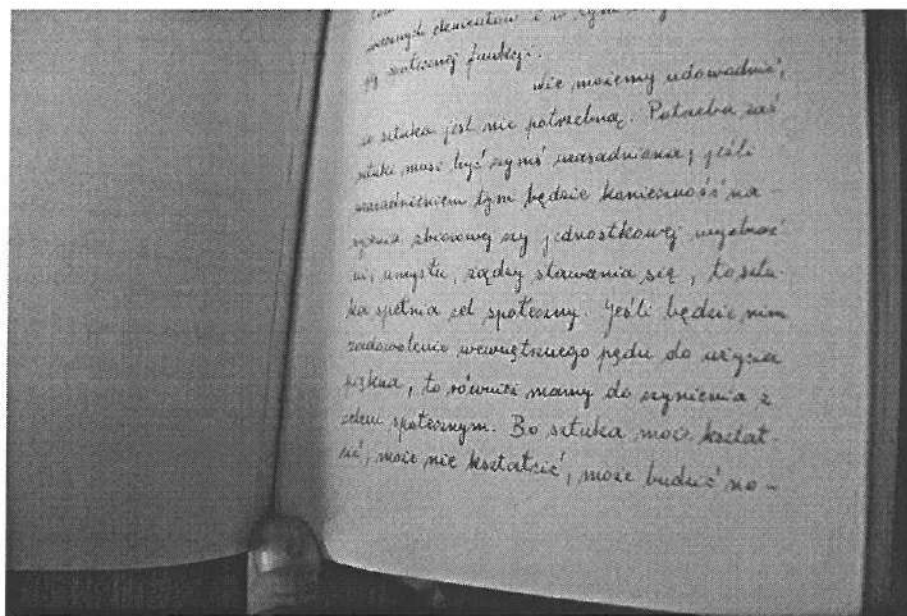 wiecznych elementów i w tym
jej społecznej funkcji.
Nie możemy udowadniać,
że sztuka jest nie potrzebną. Potrzeba zaś
sztuki musi być czymś uzasadniana; jeśli
uzasadnieniem tym będzie konieczność na-
zbiorowej czy jednostkowej wyobraź
ni, umysłu, żądzy stawania się, to sztu-
ka spełnia cel społeczny. Jeśli będzie nim
zadowolenie wewnętrznego pędu do użycia
piękna, to również mamy do czynienia z
celem społecznym. Bo sztuka może kształ-
cić, może nie kształcić, może budzić na-